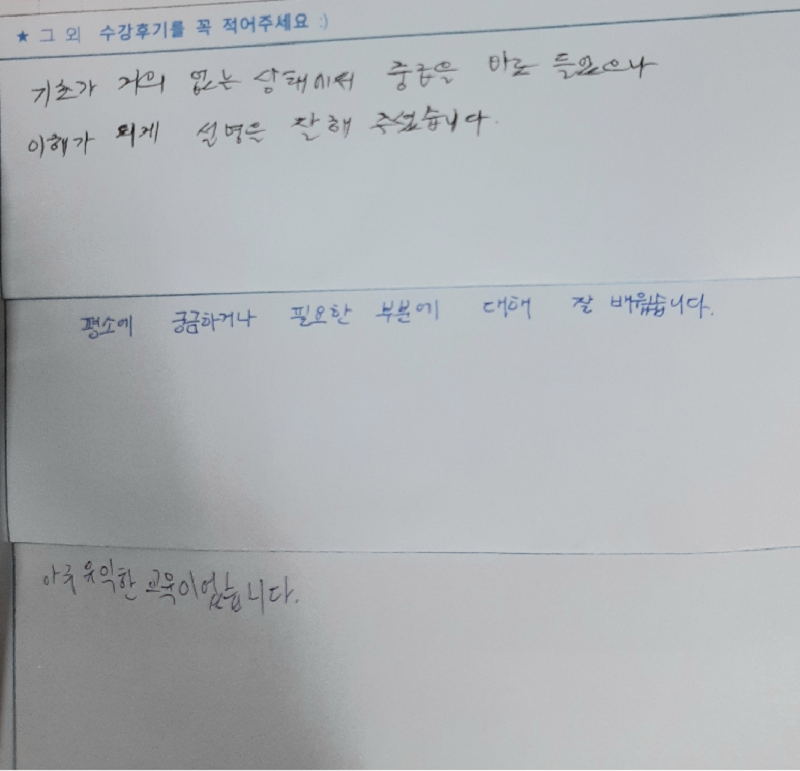 ★ 그 외 수강후기를 꼭 적어주세요 :)
기초가 거의 없는 상태에서 중급을 바로 들었으나
이해가 되게 설명을 잘해 주셨습니다.
평소에 궁금하거나 필요한 부분에 대해 잘 배웠습니다.
아주 유익한 교육이었습니다.